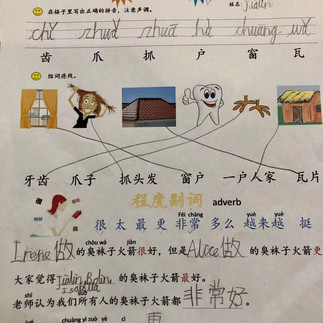 在格子里写出正确的拼音，注意声调。
姓名：
chǐ zhuǎ zhuā hù chuāng wǎ
齿 爪 抓 户 窗 瓦
组词连线。
牙齿 爪子 抓头发 窗户 一户人家 瓦片
程度副词 adverb
Fēi cháng yuè yuè
很 太 最 更 非常 多么 越来越 挺
chòu wà jiàn
Irene做的臭袜子火箭很好，但是Alice做的臭袜子火箭更
大家觉得 的臭袜子火箭最好。
shī
老师认为我们所有人的臭袜子火箭都非常好.
chuàng yì zuò cì